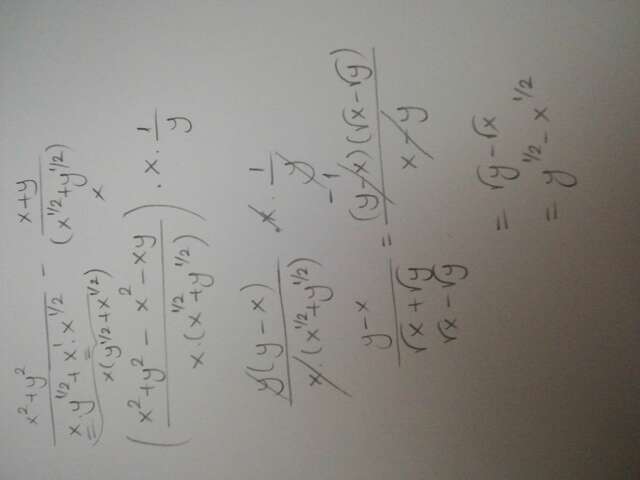 x² + y² / (x · y^1/2 + x¹ · x^1/2) − x + y / (x^1/2 + y^1/2)
x(y^1/2 + x^1/2) x
(x² + y² − x² − xy / x · (x^1/2 + y^1/2)) · x · 1/y
y(y − x) / x · (x^1/2 + y^1/2) · x · 1/y
y − x / √x + √y = (y − x)(√x − √y) / x − y
−1
√x − √y
= √y − √x
= y^1/2 − x^1/2